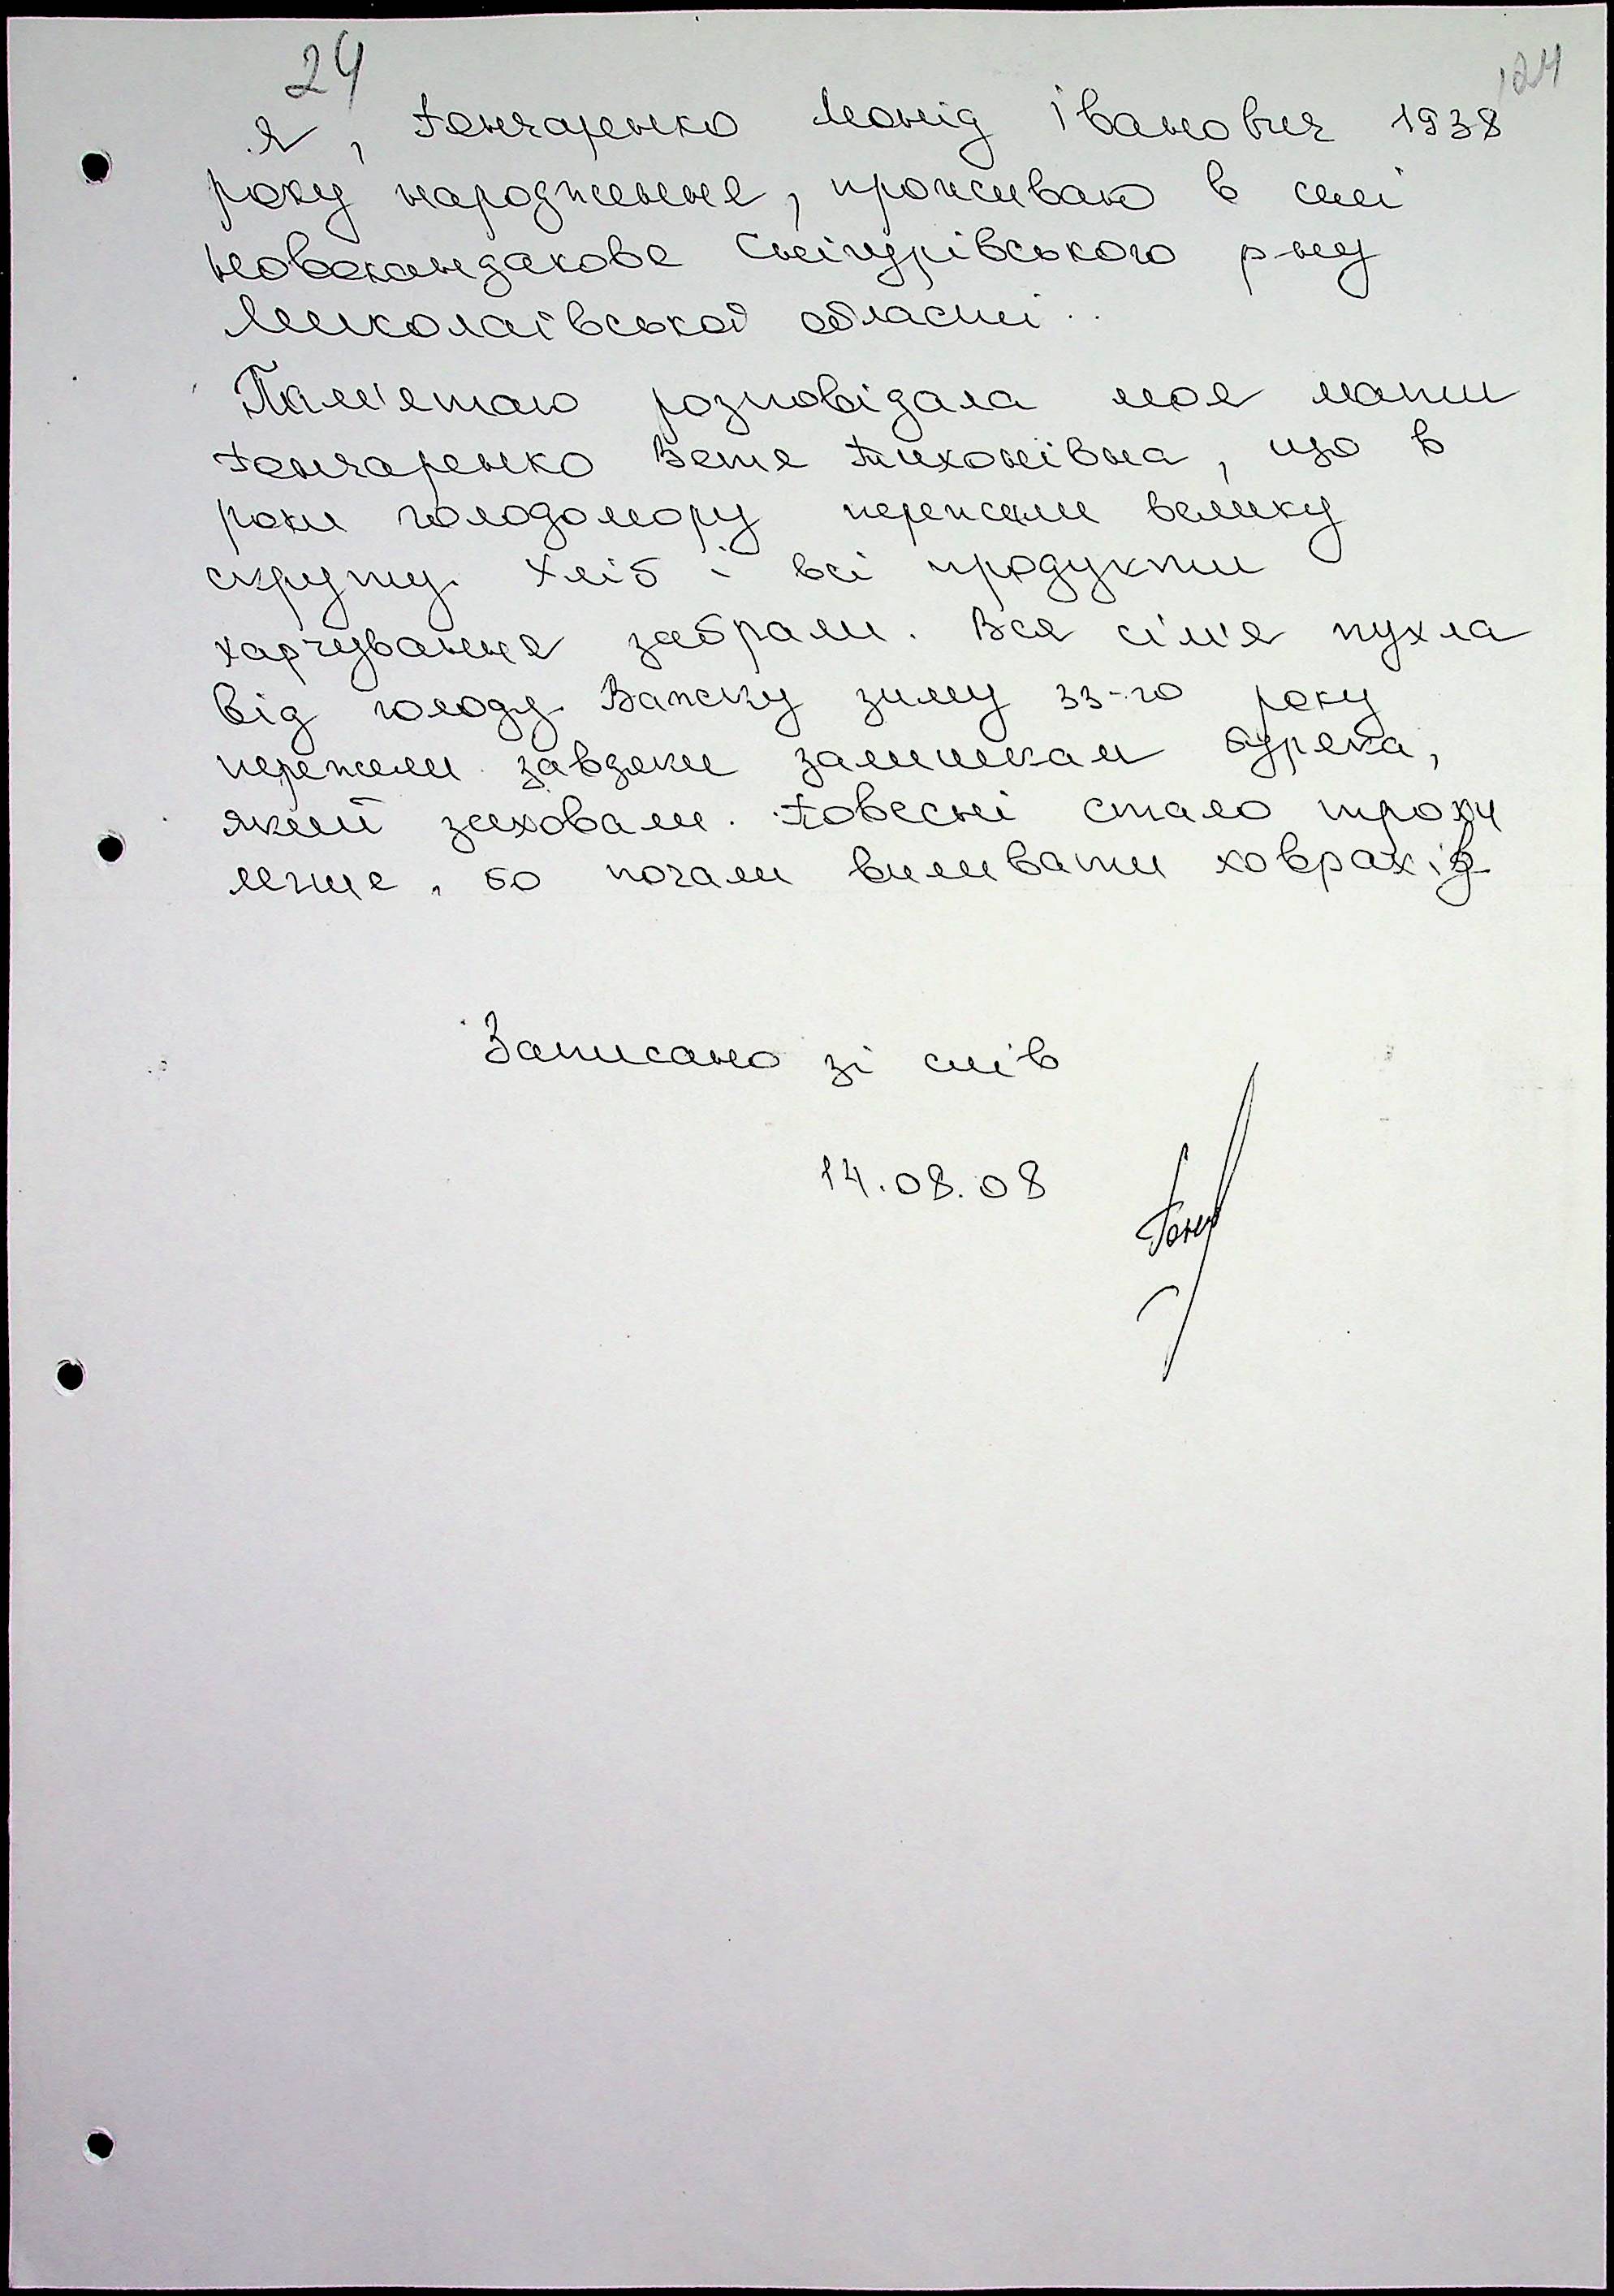 24
124
Я, Гончаренко Леонід Іванович 1938
року народження, проживаю в селі
Новокандакове Снігурівського р-ну
Миколаївської області.
Пам'ятаю розповідала моя мати
Гончаренко Тихонівна, що в
роки голодомору пережили велику
скруту. Хліб і всі продукти
харчування забрали. Вся сім'я пухла
від голоду. Важку зиму 33-го року
пережили завдяки залишкам буряка,
який заховали. Повесні стало трохи
легше, бо почали виливати ховрахів
Записано зі слів
14.08.08